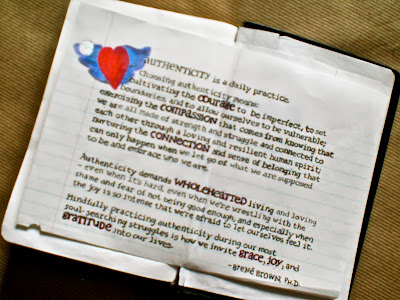 AUTHENTICITY is a daily practice.
Choosing authenticity means:
cultivating the COURAGE to be imperfect, to set
boundaries, and to allow ourselves to be vulnerable;
exercising the COMPASSION that comes from knowing that
we are all made of strength and struggle and connected to
each other through a loving and resilient human spirit;
nurturing the CONNECTION and sense of belonging that
can only happen when we let go of what we are supposed
to be and embrace who we are.
Authenticity demands WHOLEHEARTED living and loving
- even when it's hard, even when we're wrestling with the
shame and fear of not being good enough, and especially when
the joy is so intense that we're afraid to let ourselves feel it.
Mindfully practicing authenticity during our most
soul-searching struggles is how we invite grace, joy, and
gratitude into our lives.
-BRENÉ BROWN, PH.D.